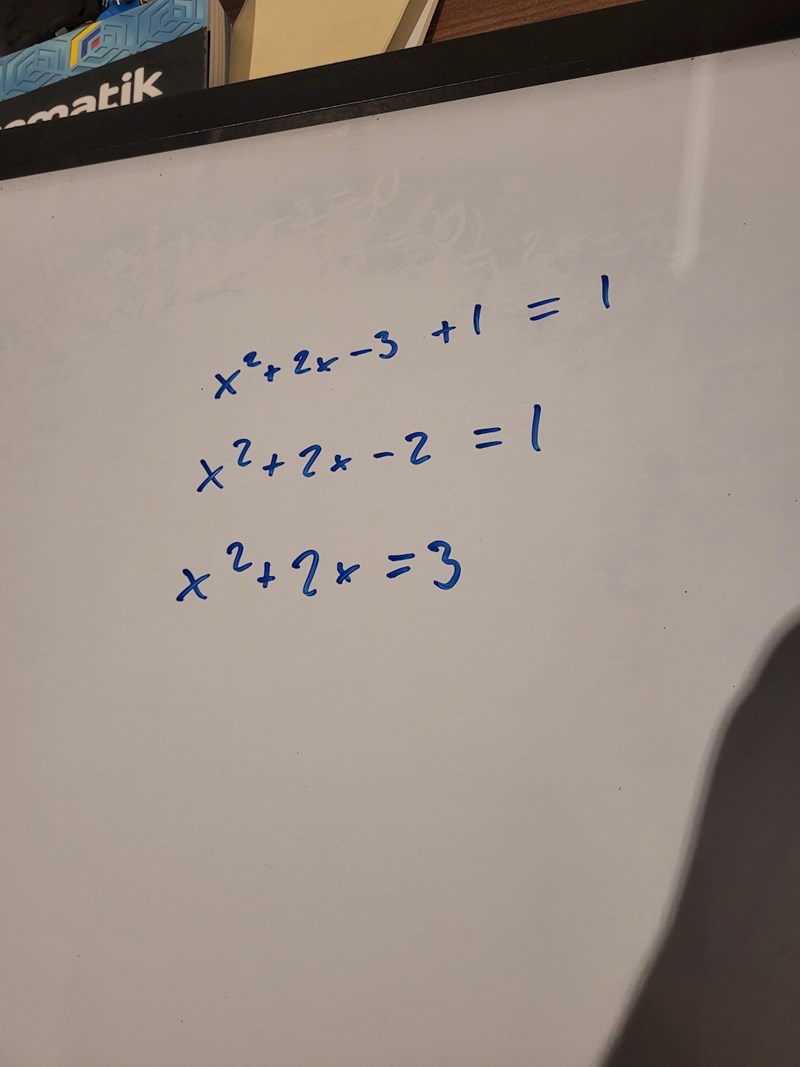 matik
x² + 2x - 3 + 1 = 1
x² + 2x - 2 = 1
x² + 2x = 3